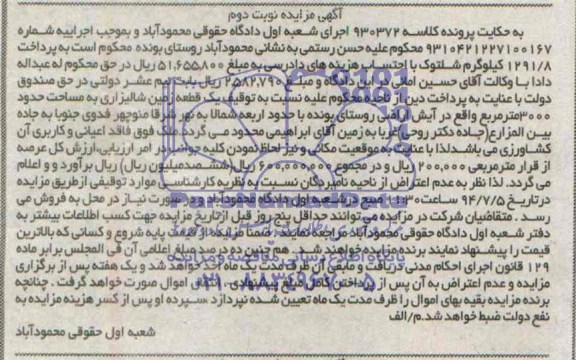 آگهی مزایده نوبت دوم
به حکایت پرونده کلاسه ۹۳۰۳۷۲ اجرای شعبه اول دادگاه حقوقی محمودآباد و بموجب اجراییه شماره
۹۳۱۰۴۲۱۲۲۷۱۰۰۱۶۷ محکوم علیه حسن رستمی به نشانی محمودآباد روستای بونده محکوم است به پرداخت
۱۲۹۱/۸ کیلوگرم شلتوک با احتساب هزینه های دادرسی به مبلغ ۵۱,۶۵۵,۸۰۰ ریال در حق محکوم له عبداله
دادا با وکالت آقای حسین املی در آن دادگاه و مبلغ ۲,۵۸۲,۷۹۰ ریال بابت نیم عشر دولتی در حق صندوق
دولت با عنایت به پرداخت دین از ناحیه محکوم علیه نسبت به توقیف یک قطعه زمین شالیزاری به مساحت حدود
۳۰۰۰مترمربع واقع در آیش اراضی روستای بونده با حدود اربعه شمالا به نهر شرقا منوچهر فدوی جنوبا به جاده
بین المزارع(جاده دکتر روحی)غربا به زمین آقای ابراهیمی محدود می گردد.ملک فوق فاقد اعیانی و کاربری آن
کشاورزی می باشد لذا با عنایت به موقعیت مکانی و نیز لحاظ نمودن کلیه جوانب در امر ارزیابی،ارزش کل عرصه
از قرار مترمربعی ۲۰۰,۰۰۰ ریال و در مجموع ۶۰۰,۰۰۰,۰۰۰ ریال(ششصدمیلیون ریال) ریال برآورد و و اعلام
می گردد. لذا نظر به عدم اعتراض از ناحیه نامبردگان نسبت به نظریه کارشناسی موارد توقیفی از طریق مزایده
در تاریخ ۹۴/۷/۵ ساعت صبح در شعبه اول دادگاه محمودآباد در صورت نیاز در محل به فروش می
رسد . متقاضیان شرکت در مزایده می توانند حداقل پنج روز قبل از تاریخ مزایده جهت کسب اطلاعات بیشتر به
دفتر شعبه اول دادگاه حقوقی محمودآباد مراجعه نمایند. ضمنا مزایده از قیمت پایه شروع و کسانی که بالاترین
قیمت را پیشنهاد نمایند برنده مزایده خواهند شد . هم چنین ده درصد مبلغ اعلامی آن فی المجلس برابر ماده
۱۲۹ قانون اجرای احکام مدنی دریافت و مابقی آن ظرف مدت یک ماه اخذ خواهد شد و یک هفته پس از برگزاری
مزایده و عدم اعتراض به آن پس از پرداخت کامل مبلغ پیشنهادی، انتقال اموال صورت خواهد گرفت . چنانچه
برنده مزایده بقیه بهای اموال را ظرف مدت یک ماه تعیین شده نپردازد ،سپرده او پس از کسر هزینه مزایده به
نفع دولت ضبط خواهد شد.م/الف
شعبه اول حقوقی محمودآباد